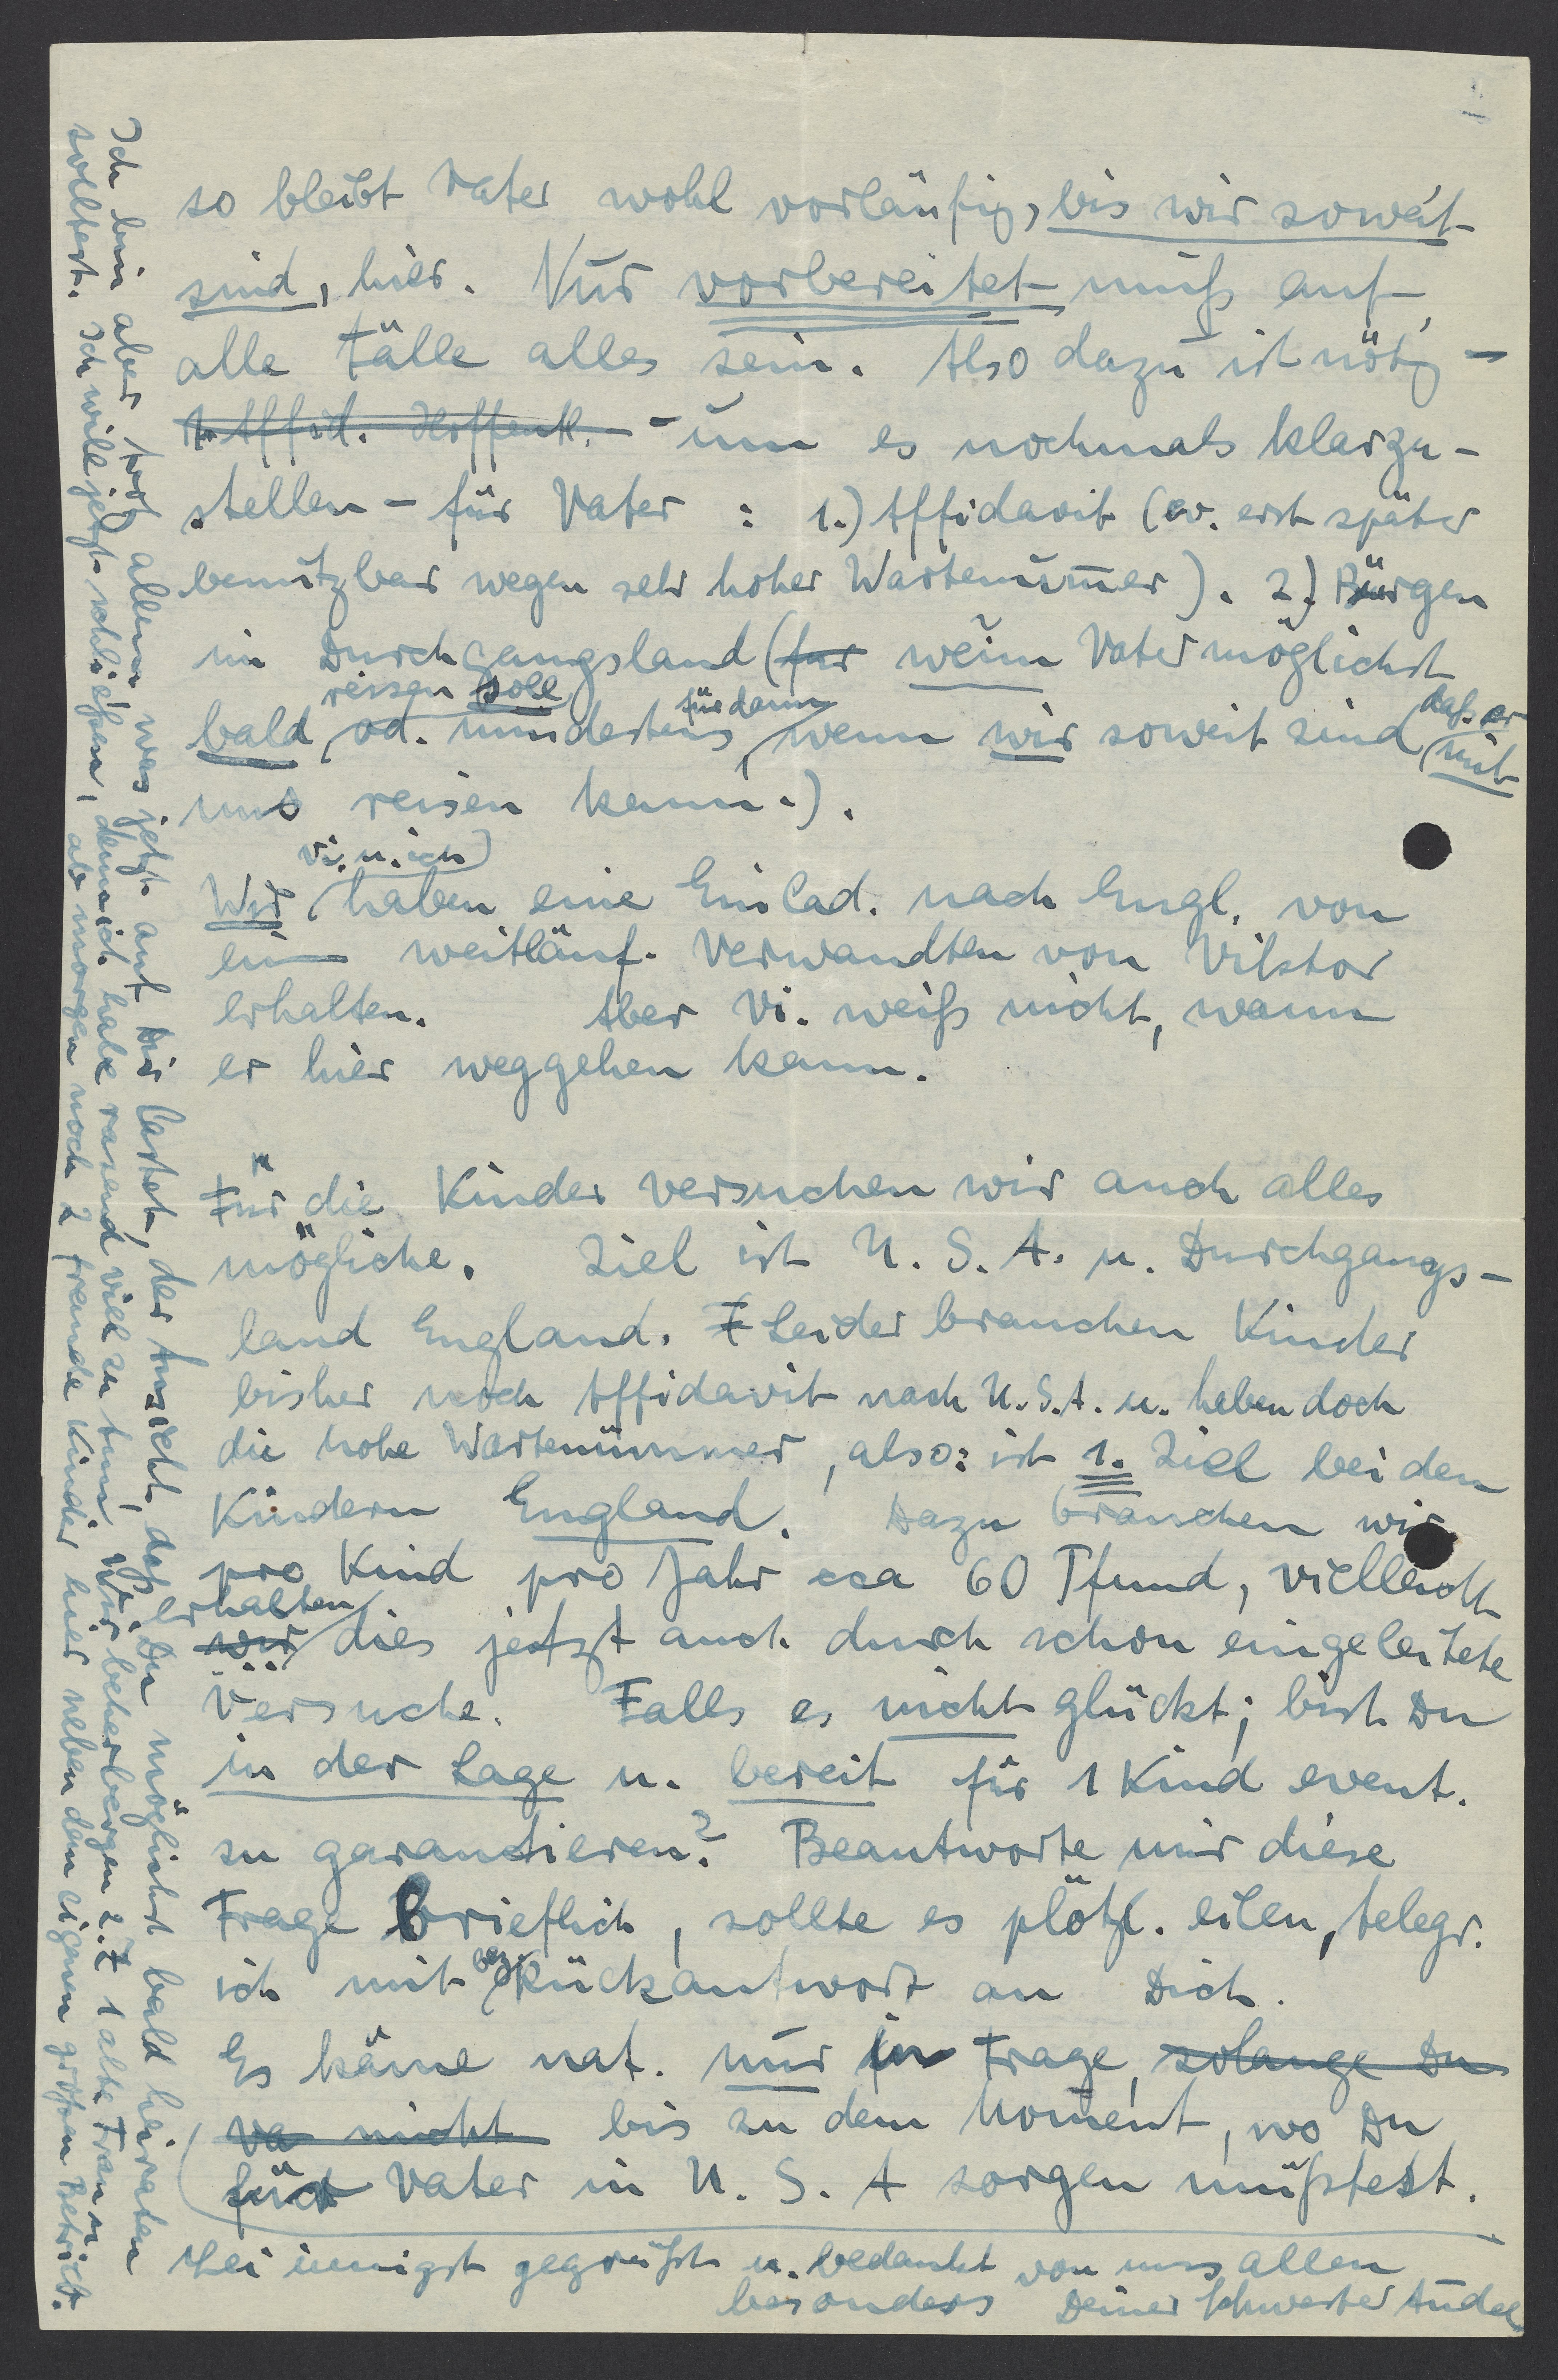 so bleibt Vater wohl vorläufig, bis wir soweit
sind, hier. Nur vorbereitet muß auf
alle Fälle alles sein. Also dazu ist nötig –
1. Affid. Hoffentl. – um es nochmals klarzu-
stellen – für Vater : 1.) Affidavit (ev. erst später
benutzbar wegen sehr hoher Wartenum̅er). 2.) Bürgen
im Durchgangsland (fur wenn Vater möglichst
reisen soll
bald, od. mindestens für dann, wenn wir soweit sind, daß er mit
uns reisen kann.).
Wir (Vi. u. ich) haben eine Einlad. nach Engl. von
ein weitläuf. Verwandten von Viktor
erhalten. Aber Vi. weiß nicht, wann
er hier weggehen kann.
Für die Kinder versuchen wir auch alles
mögliche. Ziel ist U.S.A. u. Durchgangs-
land England. Leider brauchen Kinder
bisher noch Affidavit nach U.S.A. u. haben doch
die hohe Wartenummer, also: ist 1. Ziel bei den
Kindern England. Dazu brauchen wir
pro Kind pro Jahr cca 60 Pfund, vielleicht
erhalten
wir dies jetzt auch durch schon eingeleitete
Versuche. Falls es nicht glückt; bist Du
in der Lage u. bereit für 1 Kind event.
zu garantieren? Beantworte mir diese
Frage brieflich, sollte es plötzl. eilen, telegr.
ich mit bez. Rückantwort an Dich.
Es käme nat. nur in Frage, solange Du
Va nicht bis zu dem Moment, wo Du
für Vater in U.S.A sorgen müßtest.
Sei innigst gegrüßt u. bedankt von uns allen
besonders Deiner Schwester Annel
Ich bin aber trotz allem, was jetzt auf Dir lastet, der Ansicht, daß Du möglichst bald heiraten
solltest. Ich will jetzt schließen, denn ich habe rasend viel zu tun, Wir beherbergen z.Z 1 alte Frau u.
ab morgen noch 2 fremde Kinder hier neben dem eigenen großen Betrieb.